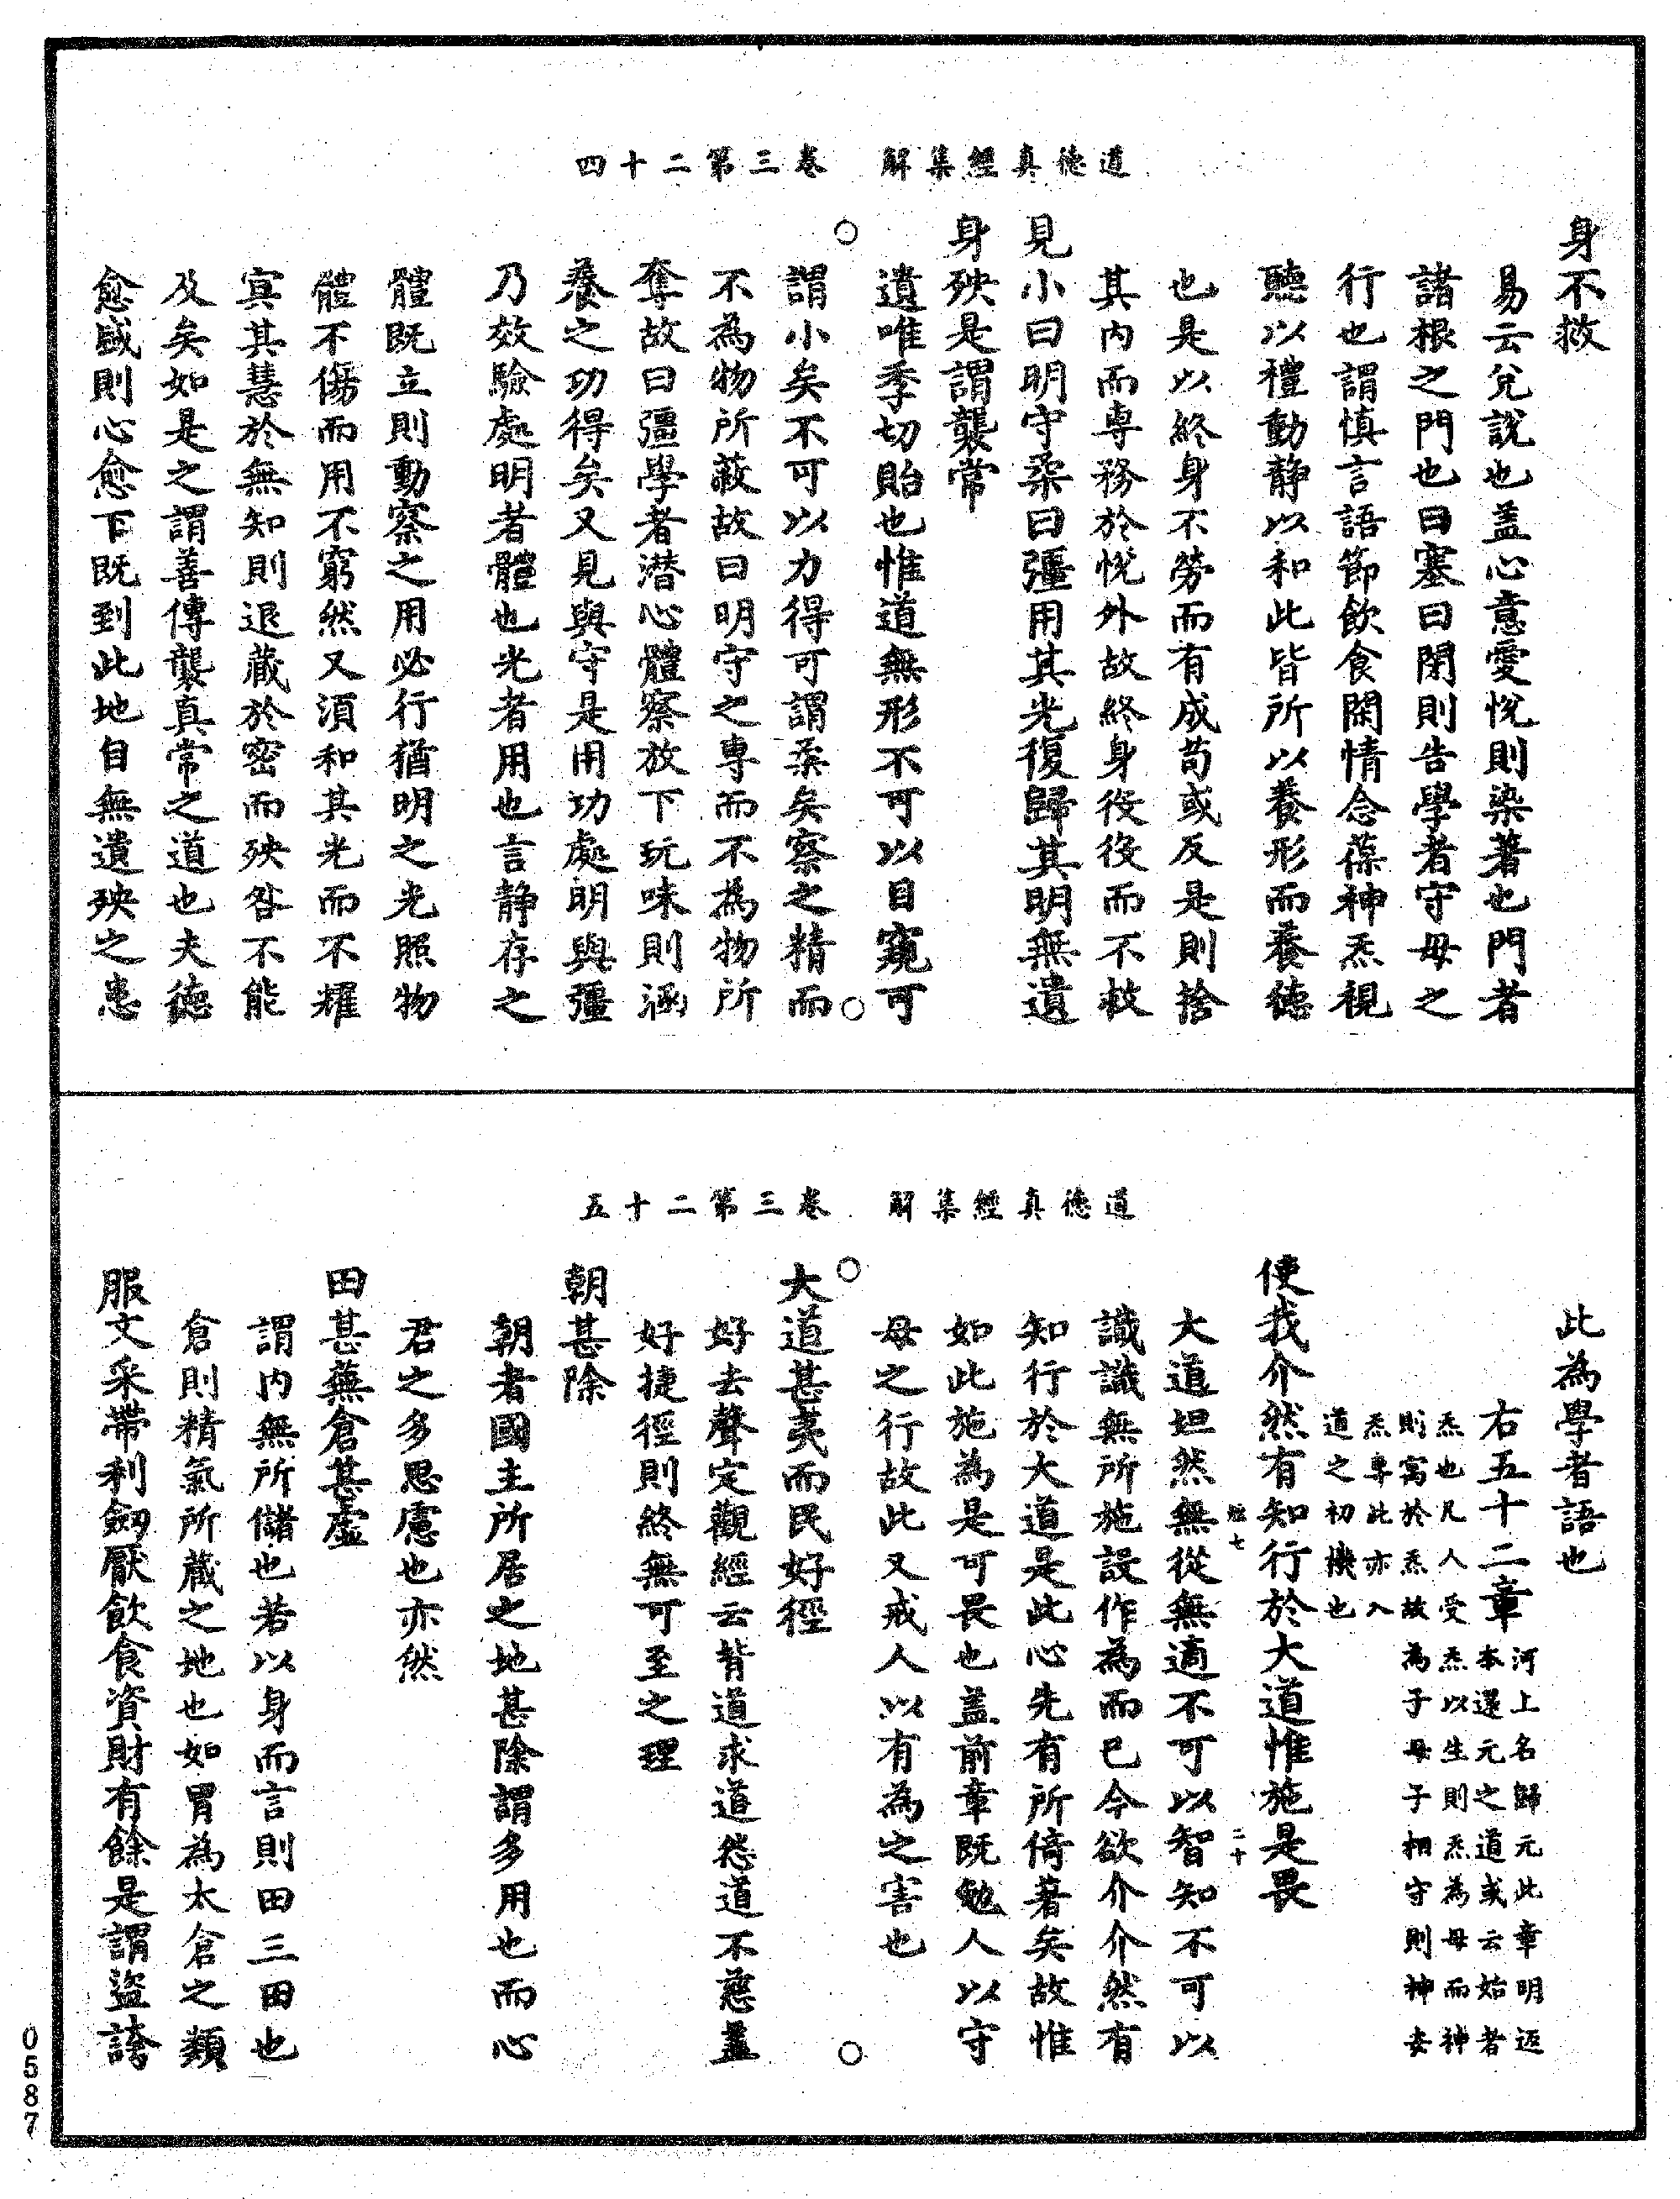 道德真經集解　卷三第二十四
身不救
易云兌說也盖心意愛悅則染著也門者
諸根之門也曰塞曰閉則告學者守母之
行也謂慎言語節飲食閑情念葆神炁視
聽以禮動靜以和此皆所以養形而養德
也是以終身不勞而有成苟或反是則捨
其內而專務於悅外故終身役役而不救
見小曰明守柔曰彊用其光復歸其明無遺
身殃是謂襲常
遺唯季切貽也惟道無形不可以目窺可
謂小矣不可以力得可謂柔矣察之精而
不為物所蔽故曰明守之專而不為物所
奪故曰彊學者潛心體察放下玩味則涵
養之功得矣又見與守是用功處明與彊
乃效驗處明者體也光者用也言靜存之
體既立則動察之用必行猶明之光照物
體不傷而用不窮然又須和其光而不耀
寘其慧於無知則退藏於密而殃咎不能
及矣如是之謂善傳襲真常之道也夫德
愈盛則心愈下既到此地自無遺殃之患
道德真經集解　卷三第二十五
此為學者語也
右五十二章
河上名歸元此章明返
本還元之道或云始者
炁也凡人受炁以生則炁為母而神
則寓於炁故為子母子相守則神安
炁專此亦入
道之初機也
使我介然有知行於大道惟施是畏
短七
二十
大道坦然無從無適不可以智知不可以
識識無所施設作為而已今欲介介然有
知行於大道是此心先有所倚著矣故惟
如此施為是可畏也盖前章既勉人以守
母之行故此又戒人以有為之害也
大道甚夷而民好徑
好去聲定觀經云背道求道怨道不慈盖
好捷徑則終無可至之理
朝甚除
朝者國主所居之地甚除謂多用也而心
君之多思慮也亦然
田甚蕪倉甚虛
謂內無所儲也若以身而言則田三田也
倉則精氣所藏之地也如胃為太倉之類
服文采帶利劒厭飲食資財有餘是謂盜誇
0587